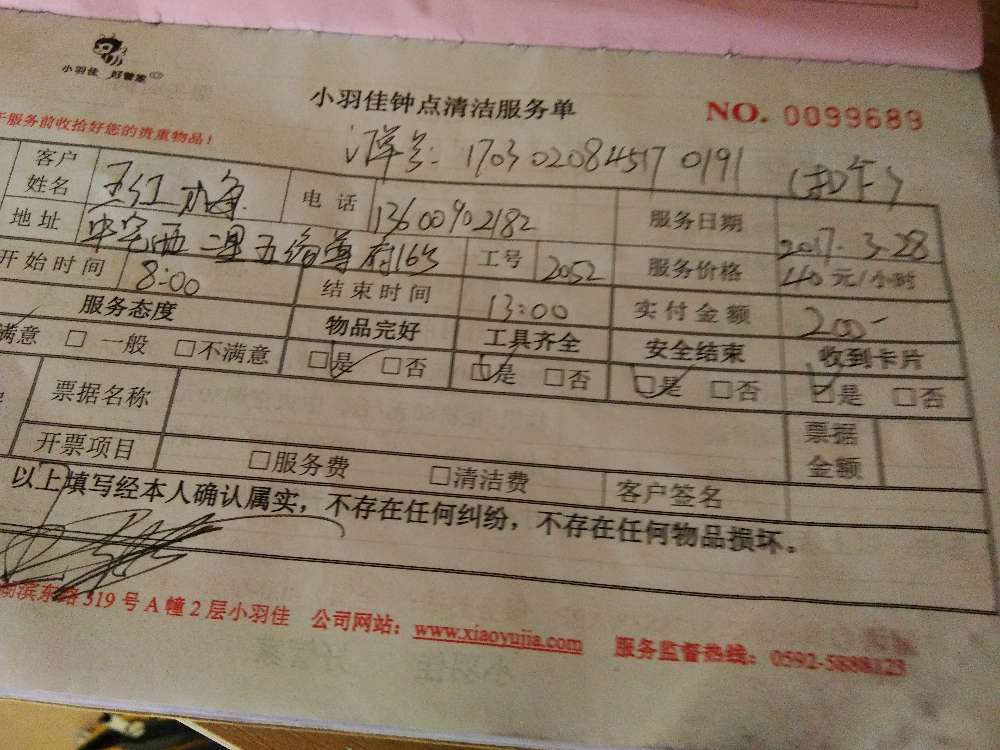 小羽佳 好管家
小羽佳钟点清洁服务单 NO. 0099689
服务前收拾好您的贵重物品!
订单号: 1703020845170191 (扣卡)
客户姓名 王红梅 电话 13600902182 服务日期 2017.3.28
地址 二里五缘尊府16号 工号 2052 服务价格 40元/小时
开始时间 8:00 结束时间 13:00 实付金额 200-
服务态度 物品完好 工具齐全 安全结束 收到卡片
满意 □一般 □不满意 □是 □否 □是 □否 □是 □否 □是 □否
票据名称 票据金额
开票项目 □服务费 □清洁费 客户签名
以上填写经本人确认属实，不存在任何纠纷，不存在任何物品损坏。
湖滨东路319号A幢2层小羽佳 公司网站：www.xiaoyujia.com 服务监督热线：0592-5888125